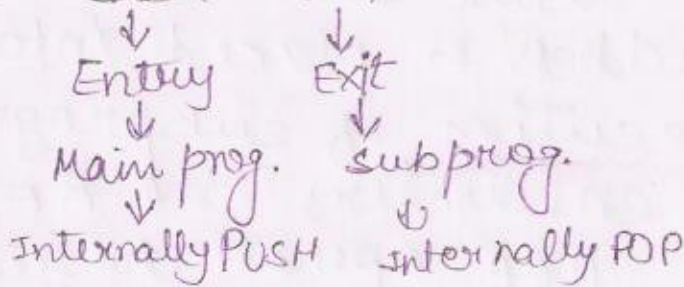 Entry Exit
Main prog. subprog.
Internally PUSH Internally POP